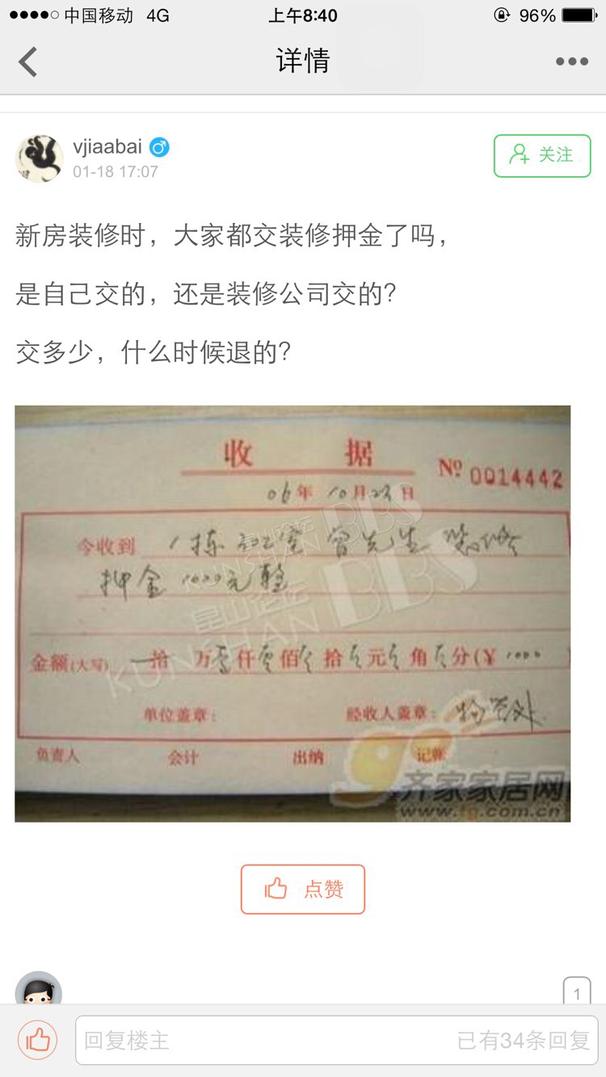 中国移动 4G 上午8:40 96%
详情
vjiaabai
关注
01-18 17:07
新房装修时，大家都交装修押金了吗，
是自己交的，还是装修公司交的？
交多少，什么时候退的？
收 据
№ 0014442
06年10月23日
今收到 1栋302室 曾先生 装修
押金 1000元整
金额(大写) 拾 万壹仟零佰 拾 元 角 分(¥ 1000
单位盖章： 经收人盖章：
负责人 会计 出纳 记账
昆山论坛
KUNSHAN BBS
齐家家居网
www.tg.com.cn
点赞
1
回复楼主 已有34条回复